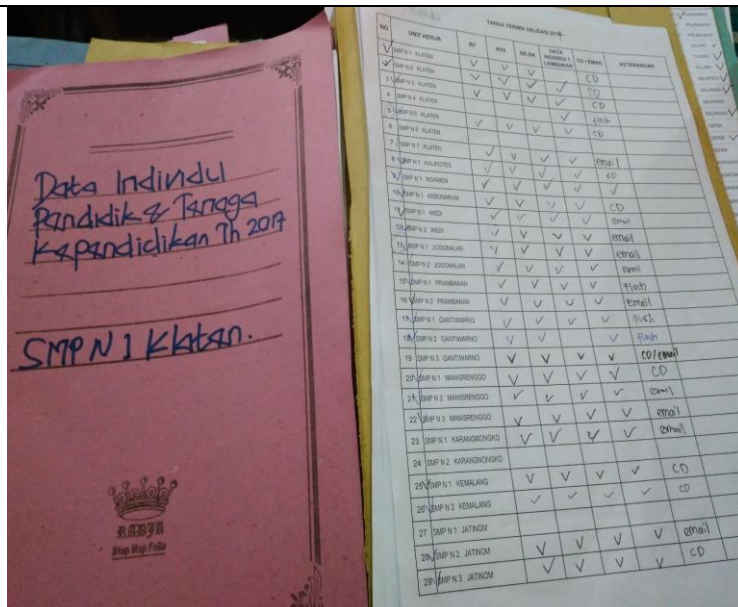 Data Individu
Pendidik & Tenaga
Kependidikan Th 2017
SMP N 1 Klaten.
RADJA
Stop Map Folio
TANDA TERIMA VALIDASI
NO UNIT KERJA DATA INDIVIDU 1 LEMBARAN CD / EMAIL KETERANGAN
SMP N 1 KLATEN
SMP N 2 KLATEN CD
3 SMP N 3 KLATEN CD
4 SMP N 4 KLATEN CD
5 SMP N 5 KLATEN flash
6 SMP N 6 KLATEN CD
7 SMP N 7 KLATEN
8 SMP N 1 KALIKOTES email
9 SMP N 1 NGAWEN CD
10 SMP N 1 KEBONARUM
11 SMP N 1 WEDI CD
12 SMP N 2 WEDI email
13 SMP N 1 JOGONALAN email
14 SMP N 2 JOGONALAN email
15 SMP N 1 PRAMBANAN Flash
16 SMP N 2 PRAMBANAN Email
17 SMP N 1 GANTIWARNO Flash
18 SMP N 2 GANTIWARNO flash
19 SMP N 3 GANTIWARNO CD/email
20 SMP N 1 MANISRENGGO CD
21 SMP N 2 MANISRENGGO email
22 SMP N 3 MANISRENGGO email
23 SMP N 1 KARANGNONGKO email
24 SMP N 2 KARANGNONGKO
25 SMP N 1 KEMALANG CD
26 SMP N 2 KEMALANG CD
27 SMP N 1 JATINOM
28 SMP N 2 JATINOM email
29 SMP N 3 JATINOM CD